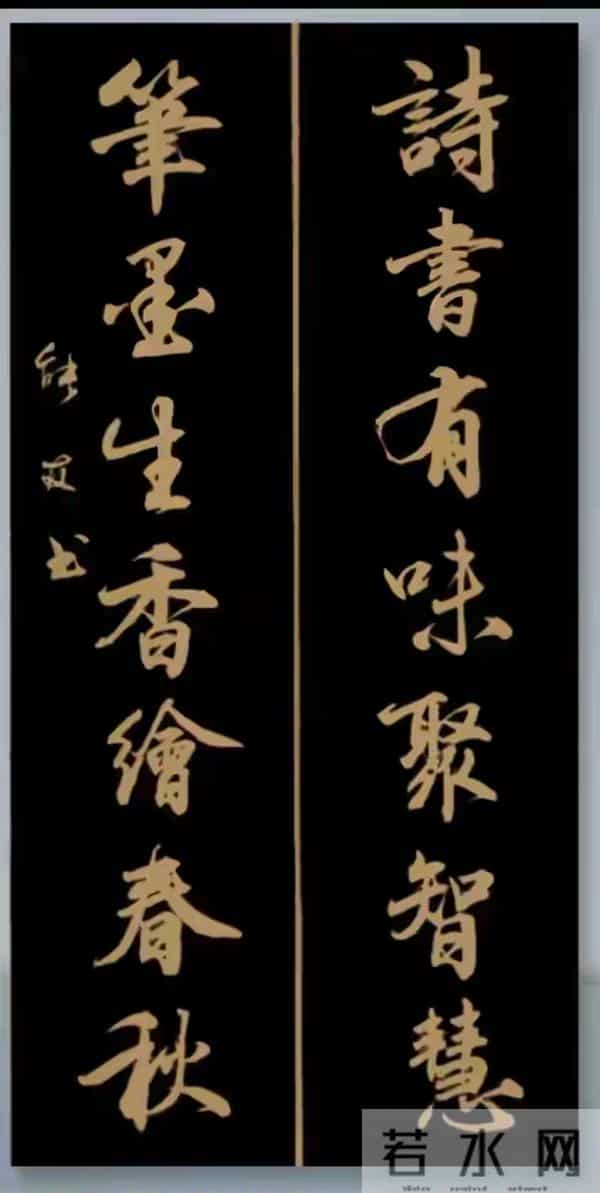 詩書有味聚智慧
筆墨生香繪春秋
若水网